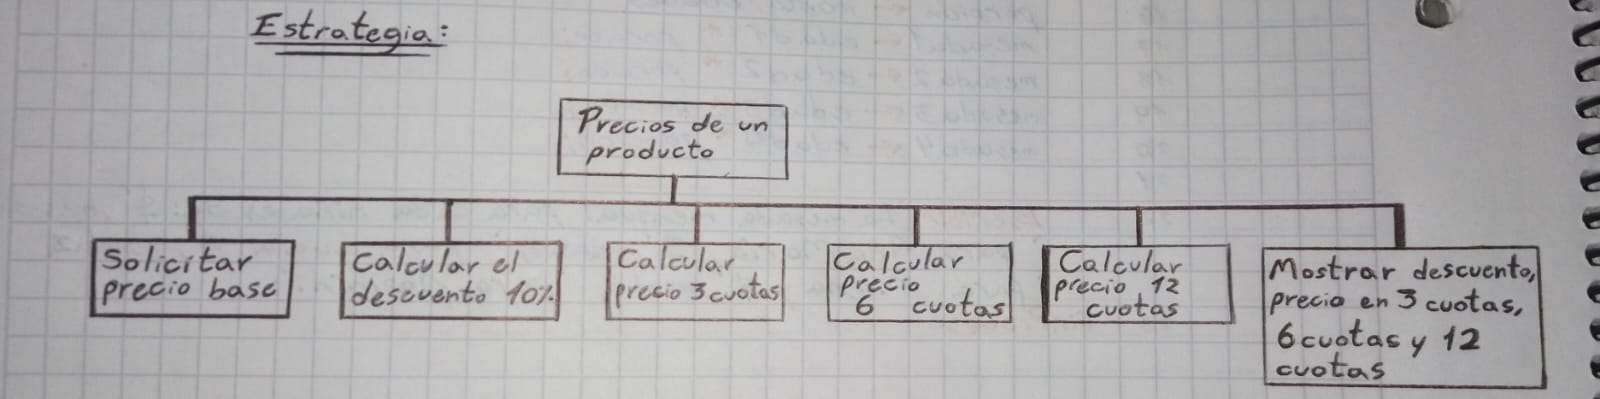 Estrategia:
Precios de un
producto
Solicitar
precio base
Calcular el
descuento 10%
Calcular
precio 3 cuotas
Calcular
precio
6 cuotas
Calcular
precio 12
cuotas
Mostrar descuento,
precio en 3 cuotas,
6 cuotas y 12
cuotas